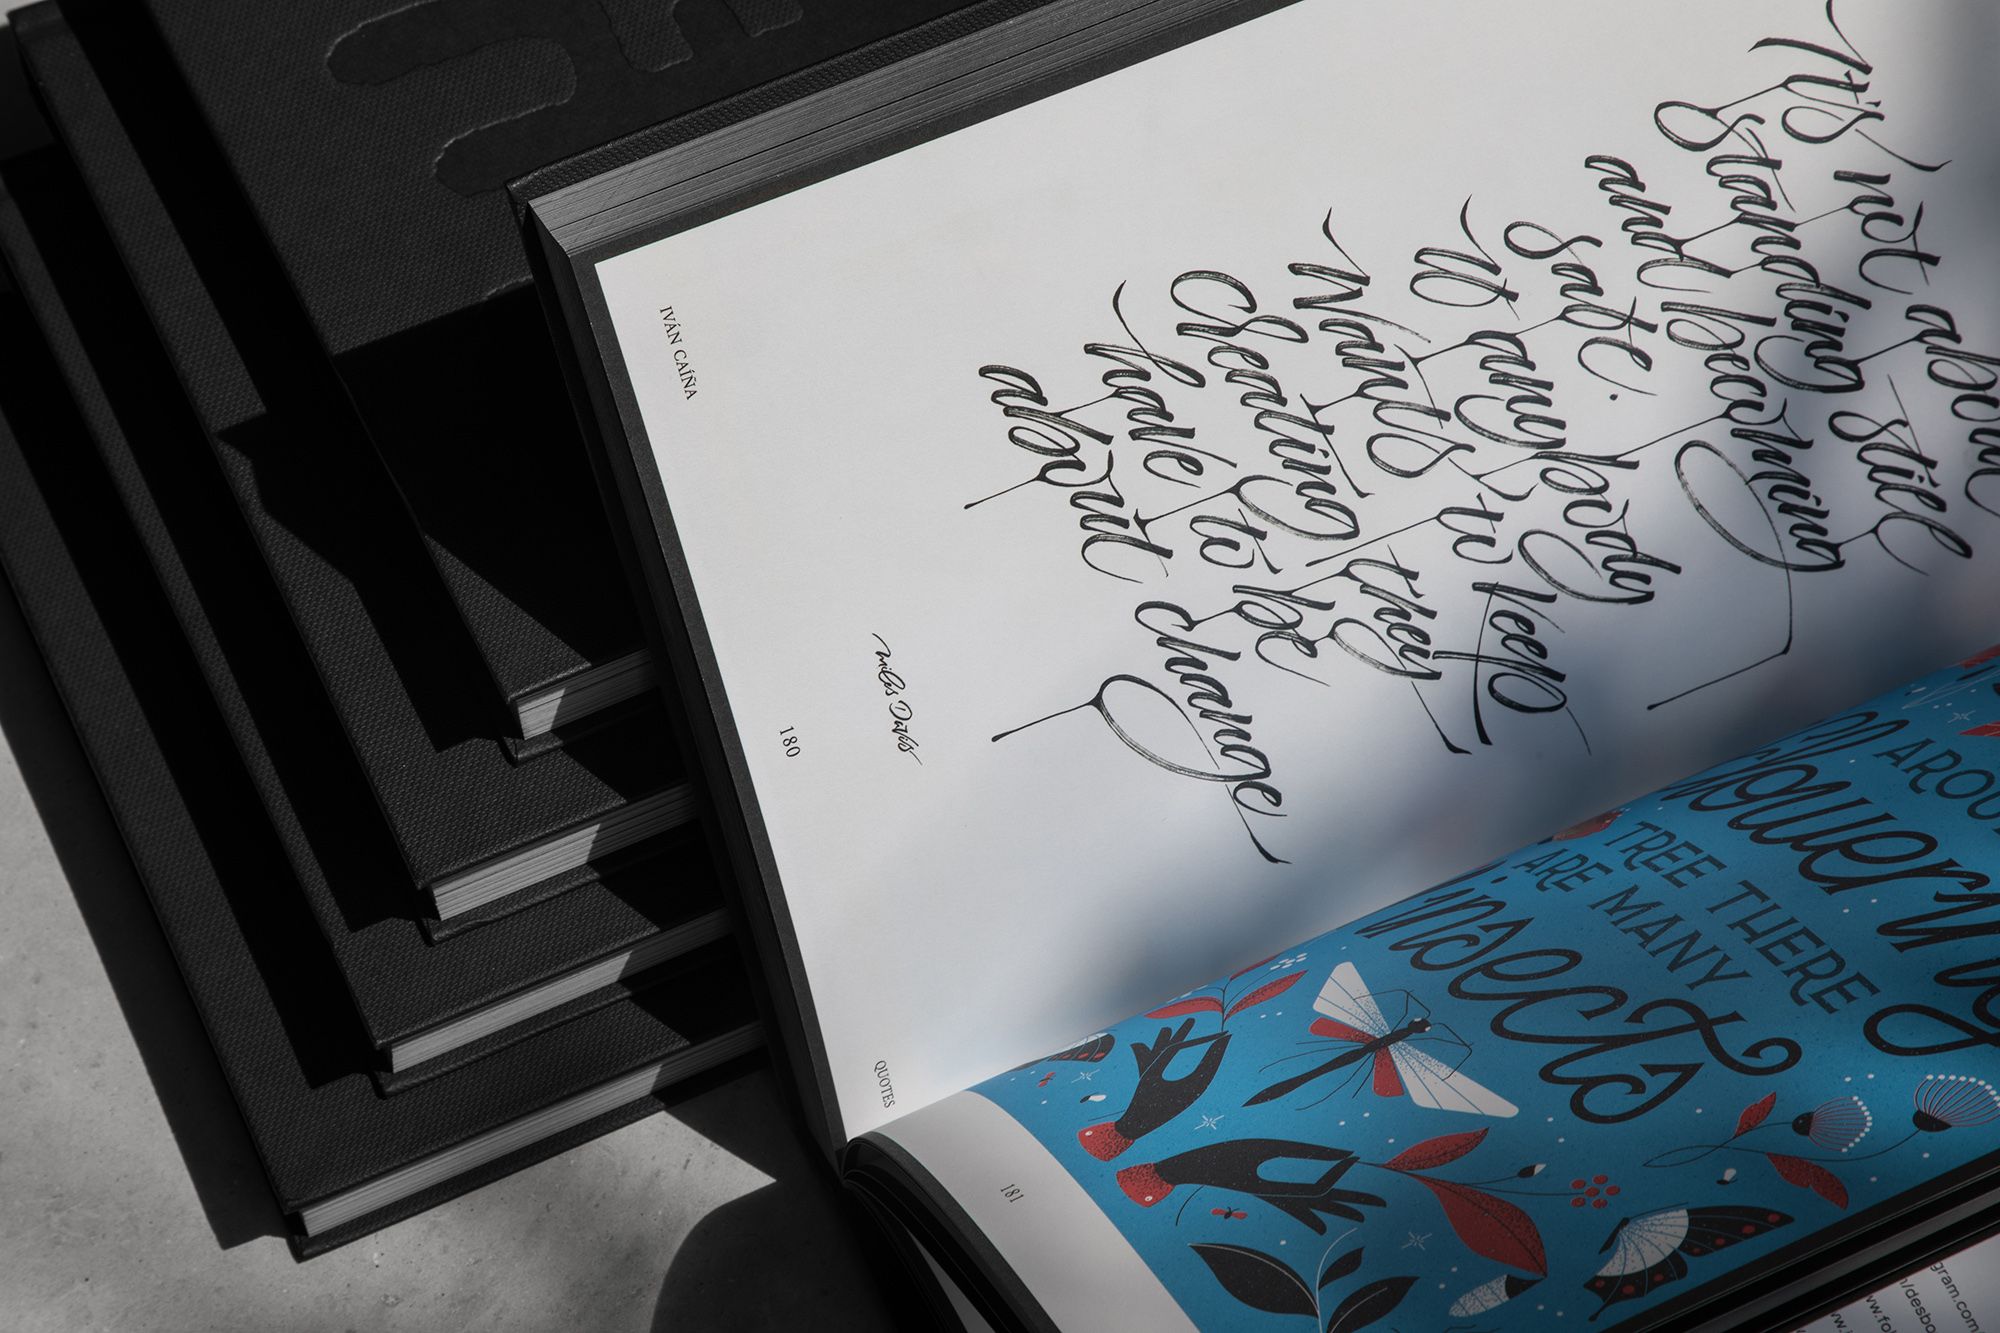 It's not abou
standing still
and becoming
safe.
If anybody
wants to keep
creating they
have to be
about change
Miles Davis
IVÁN CAÍÑA
180
QUOTES
AROU
flowering
TREE THERE
ARE MANY
insects
181
gram.com
/desbo
www.fo